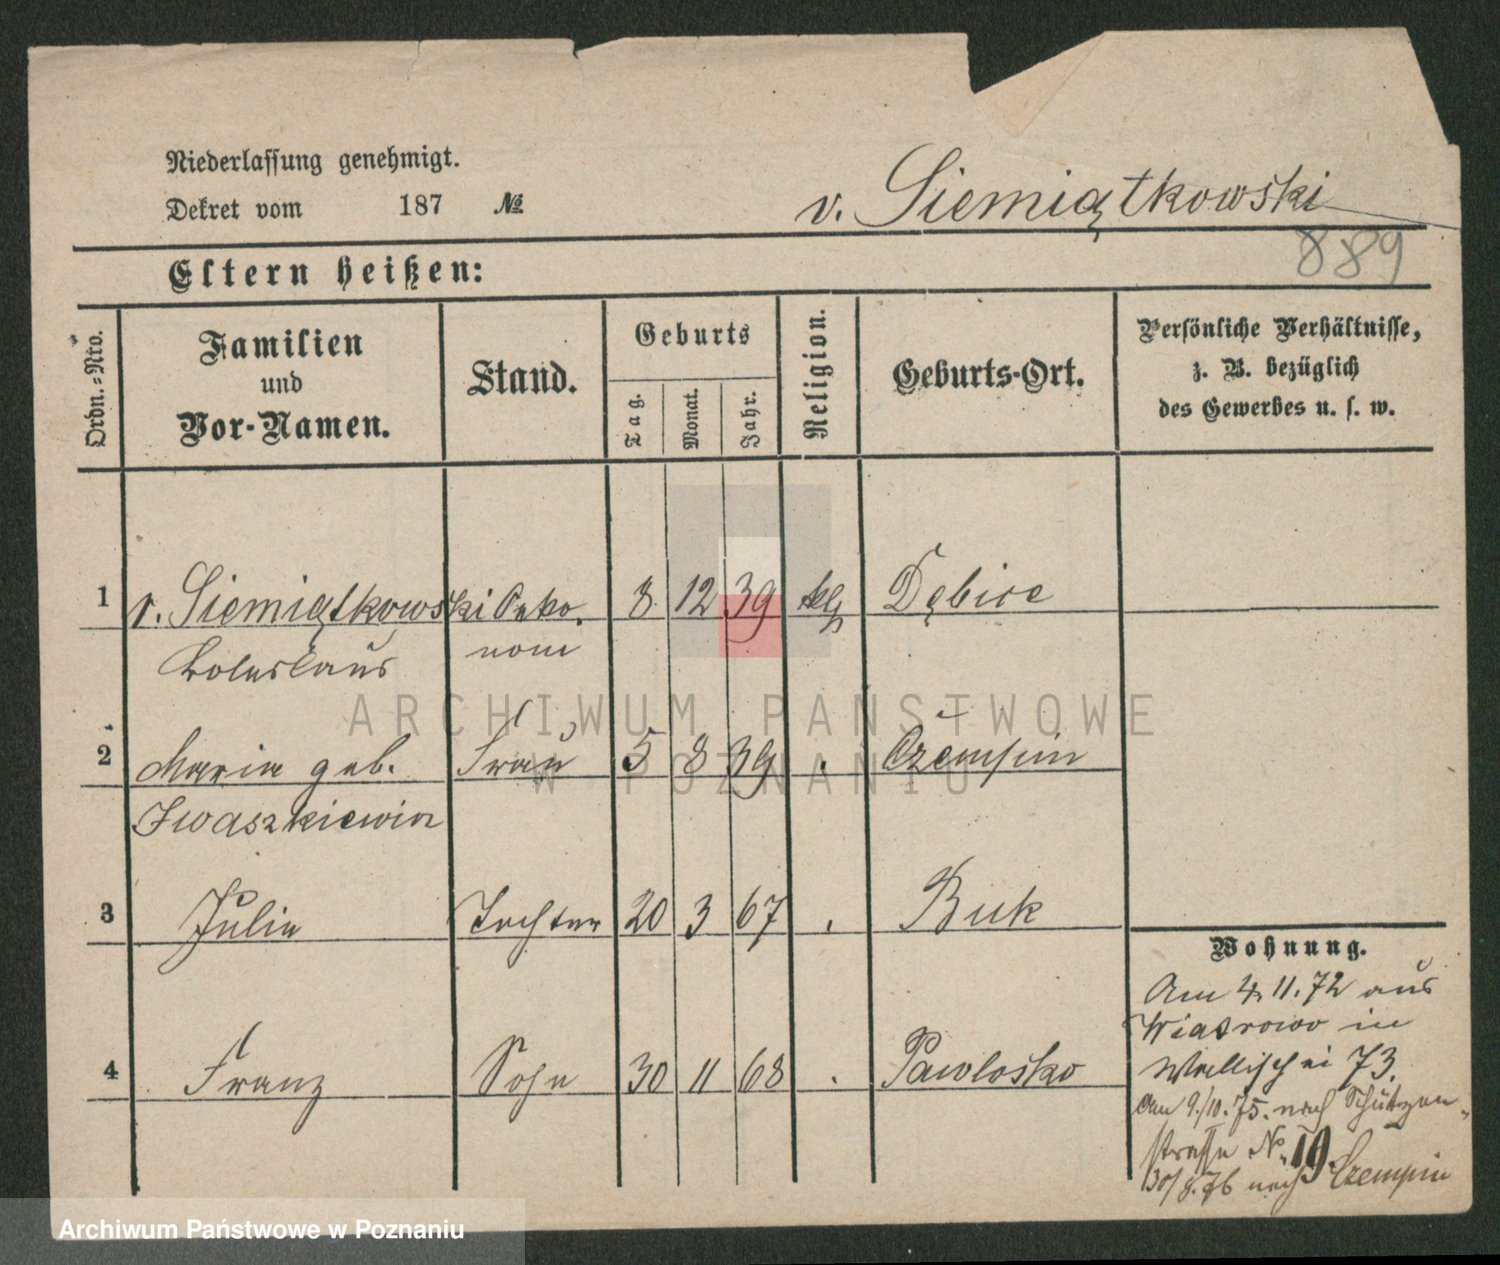 Niederlassung genehmigt.
Dekret vom 187 №
v. Siemiątkowski
889
Eltern heißen:
Ordn.=Nro.
Familien
und
Vor-Namen.
Stand.
Geburts
Tag.
Monat.
Jahr.
Religion.
Geburts-Ort.
Persönliche Verhältnisse,
z. B. bezüglich
des Gewerbes u. s. w.
1 v. Siemiątkowski Oeko= 8 12 39 klg Dębice
Boleslaus nom
ARCHIWUM PAŃSTWOWE
W POZNANIU
2 Maria geb. Frau 5 8 39 . Czempin
Iwaszkiewicz
3 Julia Tochter 20 3 67 . Buk
4 Franz Sohn 30 11 68 . Pawlośko
Wohnung.
Am 4. 11. 72 aus
Wiatrowo in
Wallischei 73.
Am 9./10. 75. nach Schützen=
strasse No. 19.
30/9. 76 nach Czempin
Archiwum Państwowe w Poznaniu